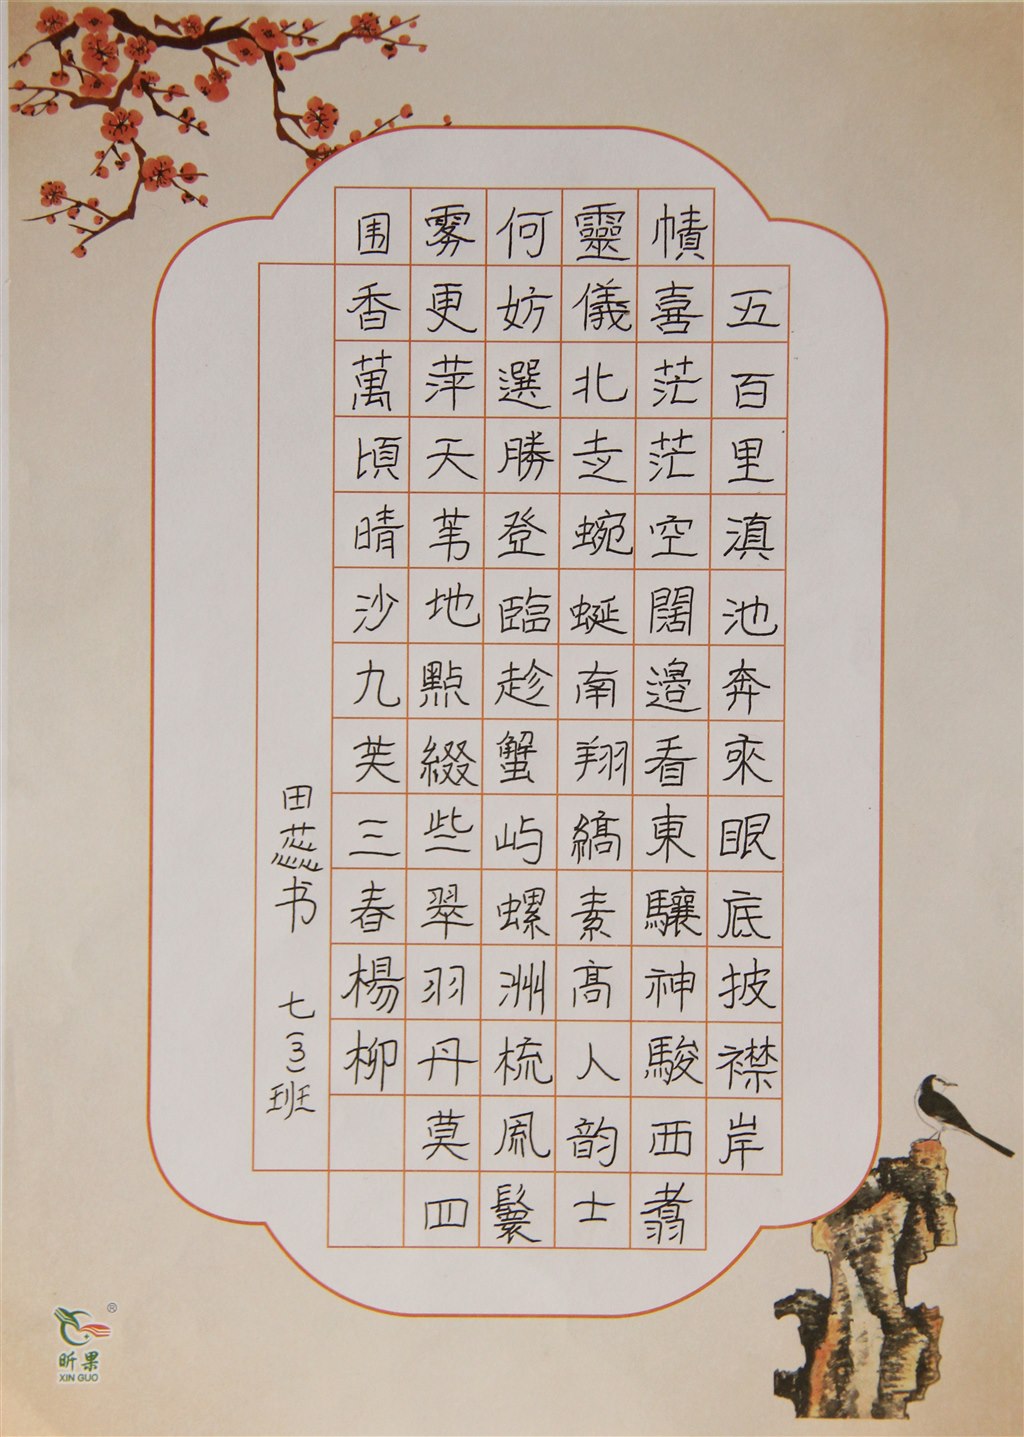 五百里滇池奔來眼底披襟岸
幘喜茫茫空闊邉看東驤神駿西翥
靈儀北走蜿蜒南翔縞素髙人韵士
何妨選勝登臨趁蟹屿螺洲梳風鬟
雾更萍天苇地點綴些翠羽丹莫四
围香萬頃晴沙九芙三春楊柳
田蕊书 七(3)班
昕果
XIN GUO